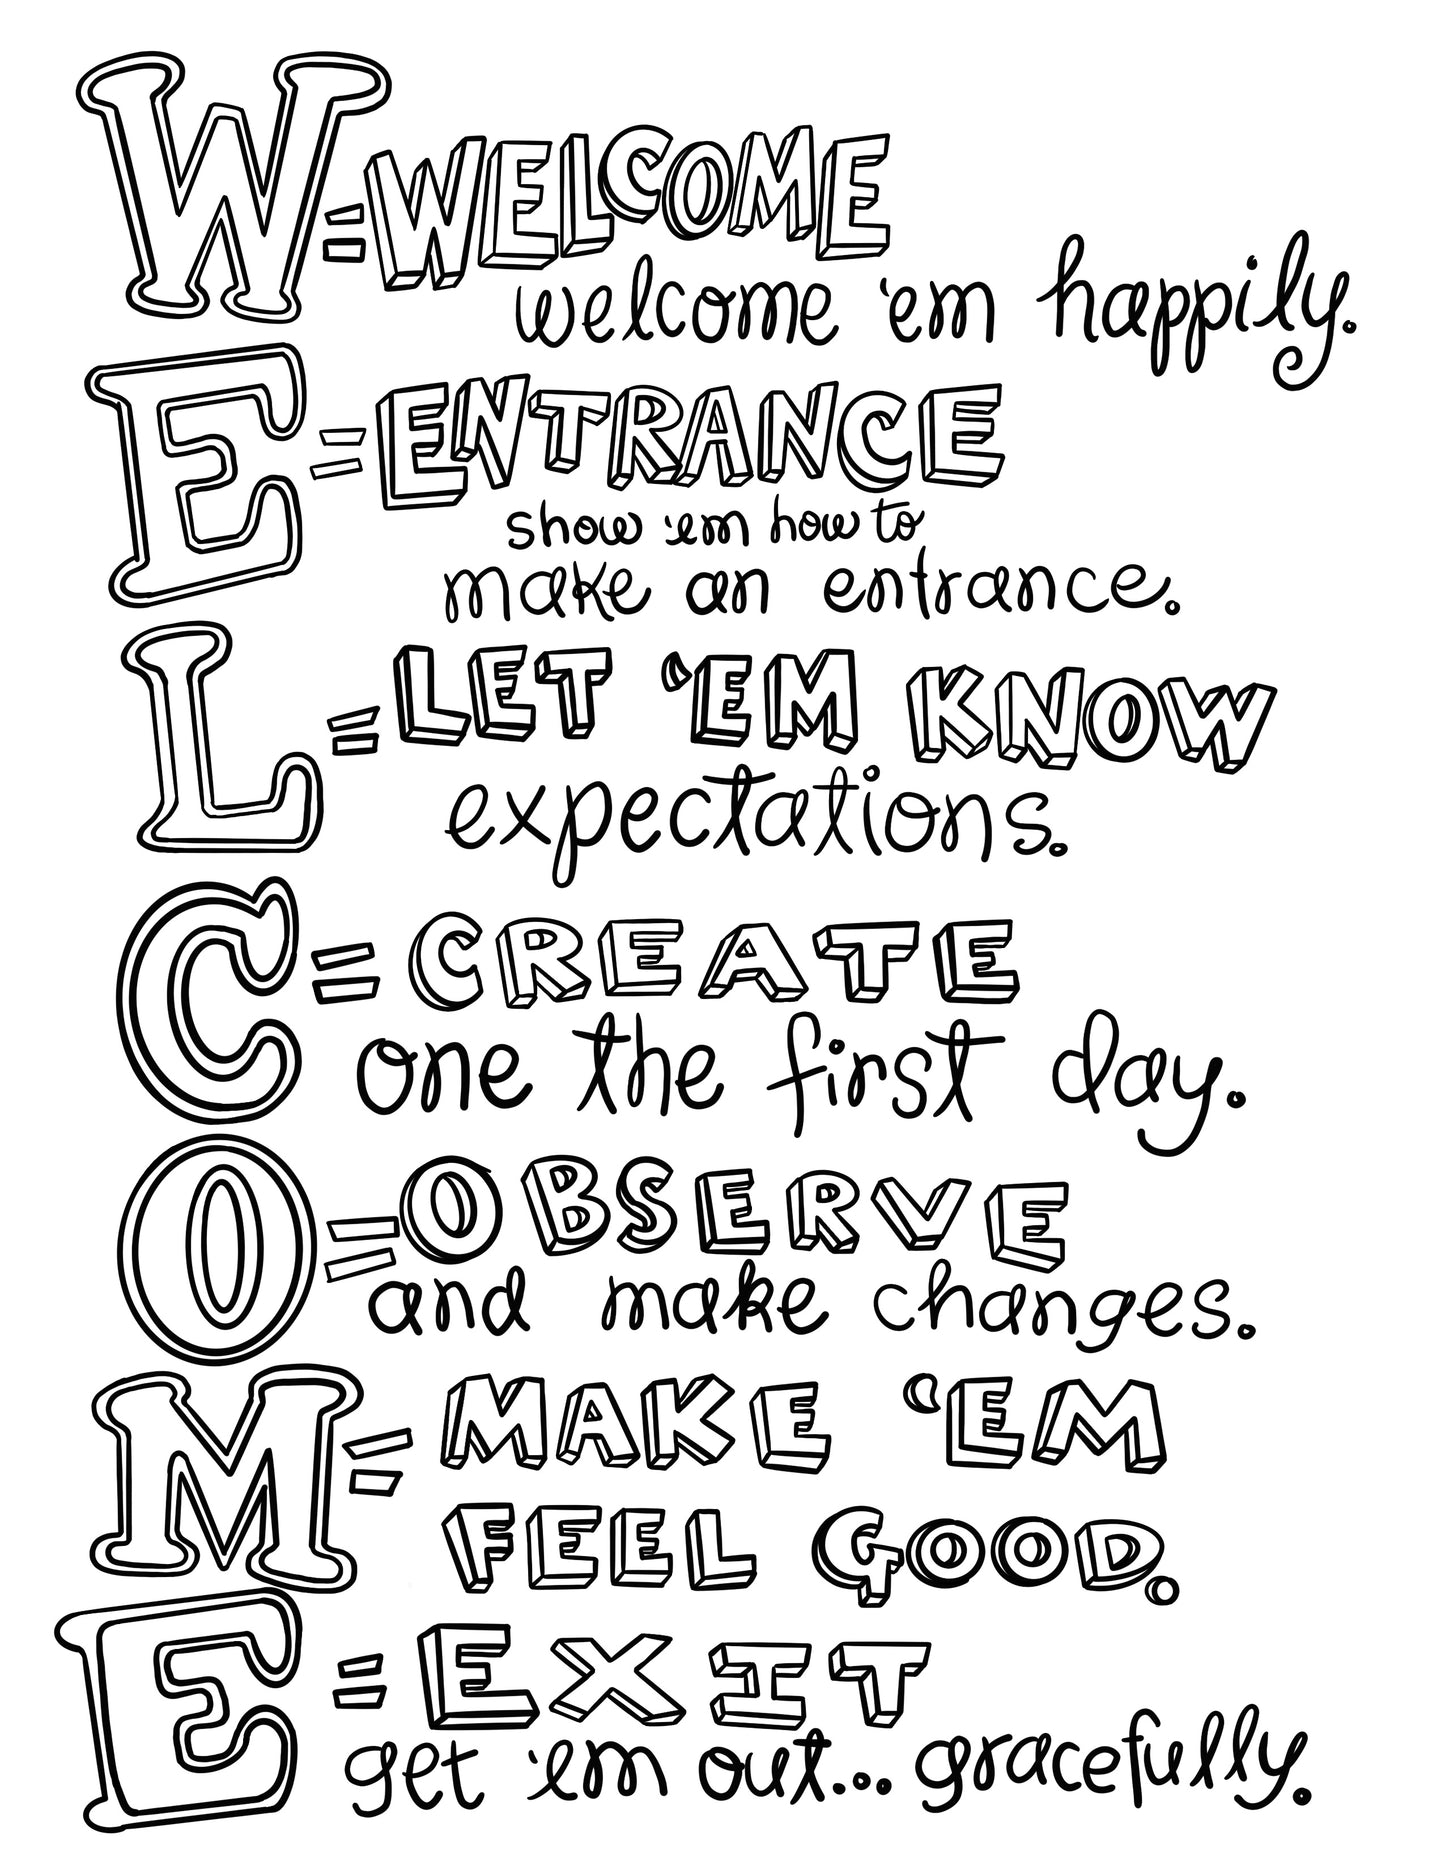 W=WELCOME
welcome 'em happily.
E=ENTRANCE
show 'em how to
make an entrance.
L=LET 'EM KNOW
expectations.
C=CREATE
one the first day.
O=OBSERVE
and make changes.
M=MAKE 'EM
FEEL GOOD.
E=EXIT
get 'em out... gracefully.